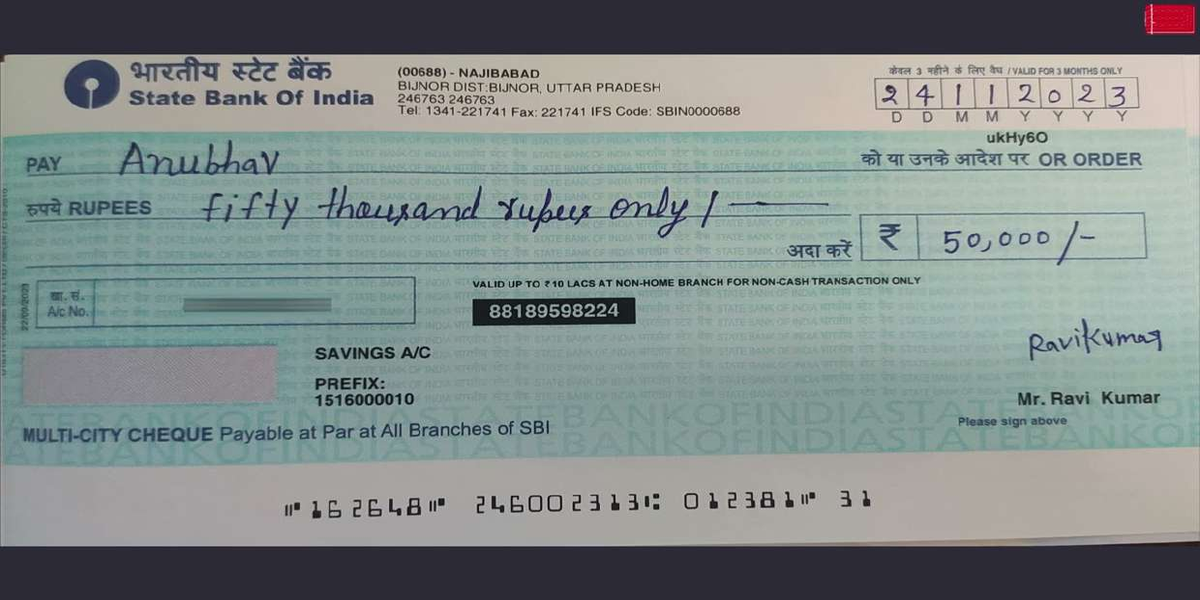 भारतीय स्टेट बैंक
State Bank Of India
(00688) - NAJIBABAD
BIJNOR DIST:BIJNOR, UTTAR PRADESH
246763 246763
Tel: 1341-221741 Fax: 221741 IFS Code: SBIN0000688
केवल 3 महीने के लिए वैध / VALID FOR 3 MONTHS ONLY
2 4 1 1 2 0 2 3
D D M M Y Y Y Y
ukHy6O
PAY Anubhav को या उनके आदेश पर OR ORDER
रुपये RUPEES fifty thousand rupees only /
अदा करें ₹ 50,000/-
खा. सं.
A/c No.
VALID UP TO ₹ 10 LACS AT NON-HOME BRANCH FOR NON-CASH TRANSACTION ONLY
88189598224
22/09/2023
SAVINGS A/C
PREFIX:
1516000010
RaviKumar
Mr. Ravi Kumar
Please sign above
MULTI-CITY CHEQUE Payable at Par at All Branches of SBI
⑈162648⑈ 246002313⑆ 012381⑈ 31